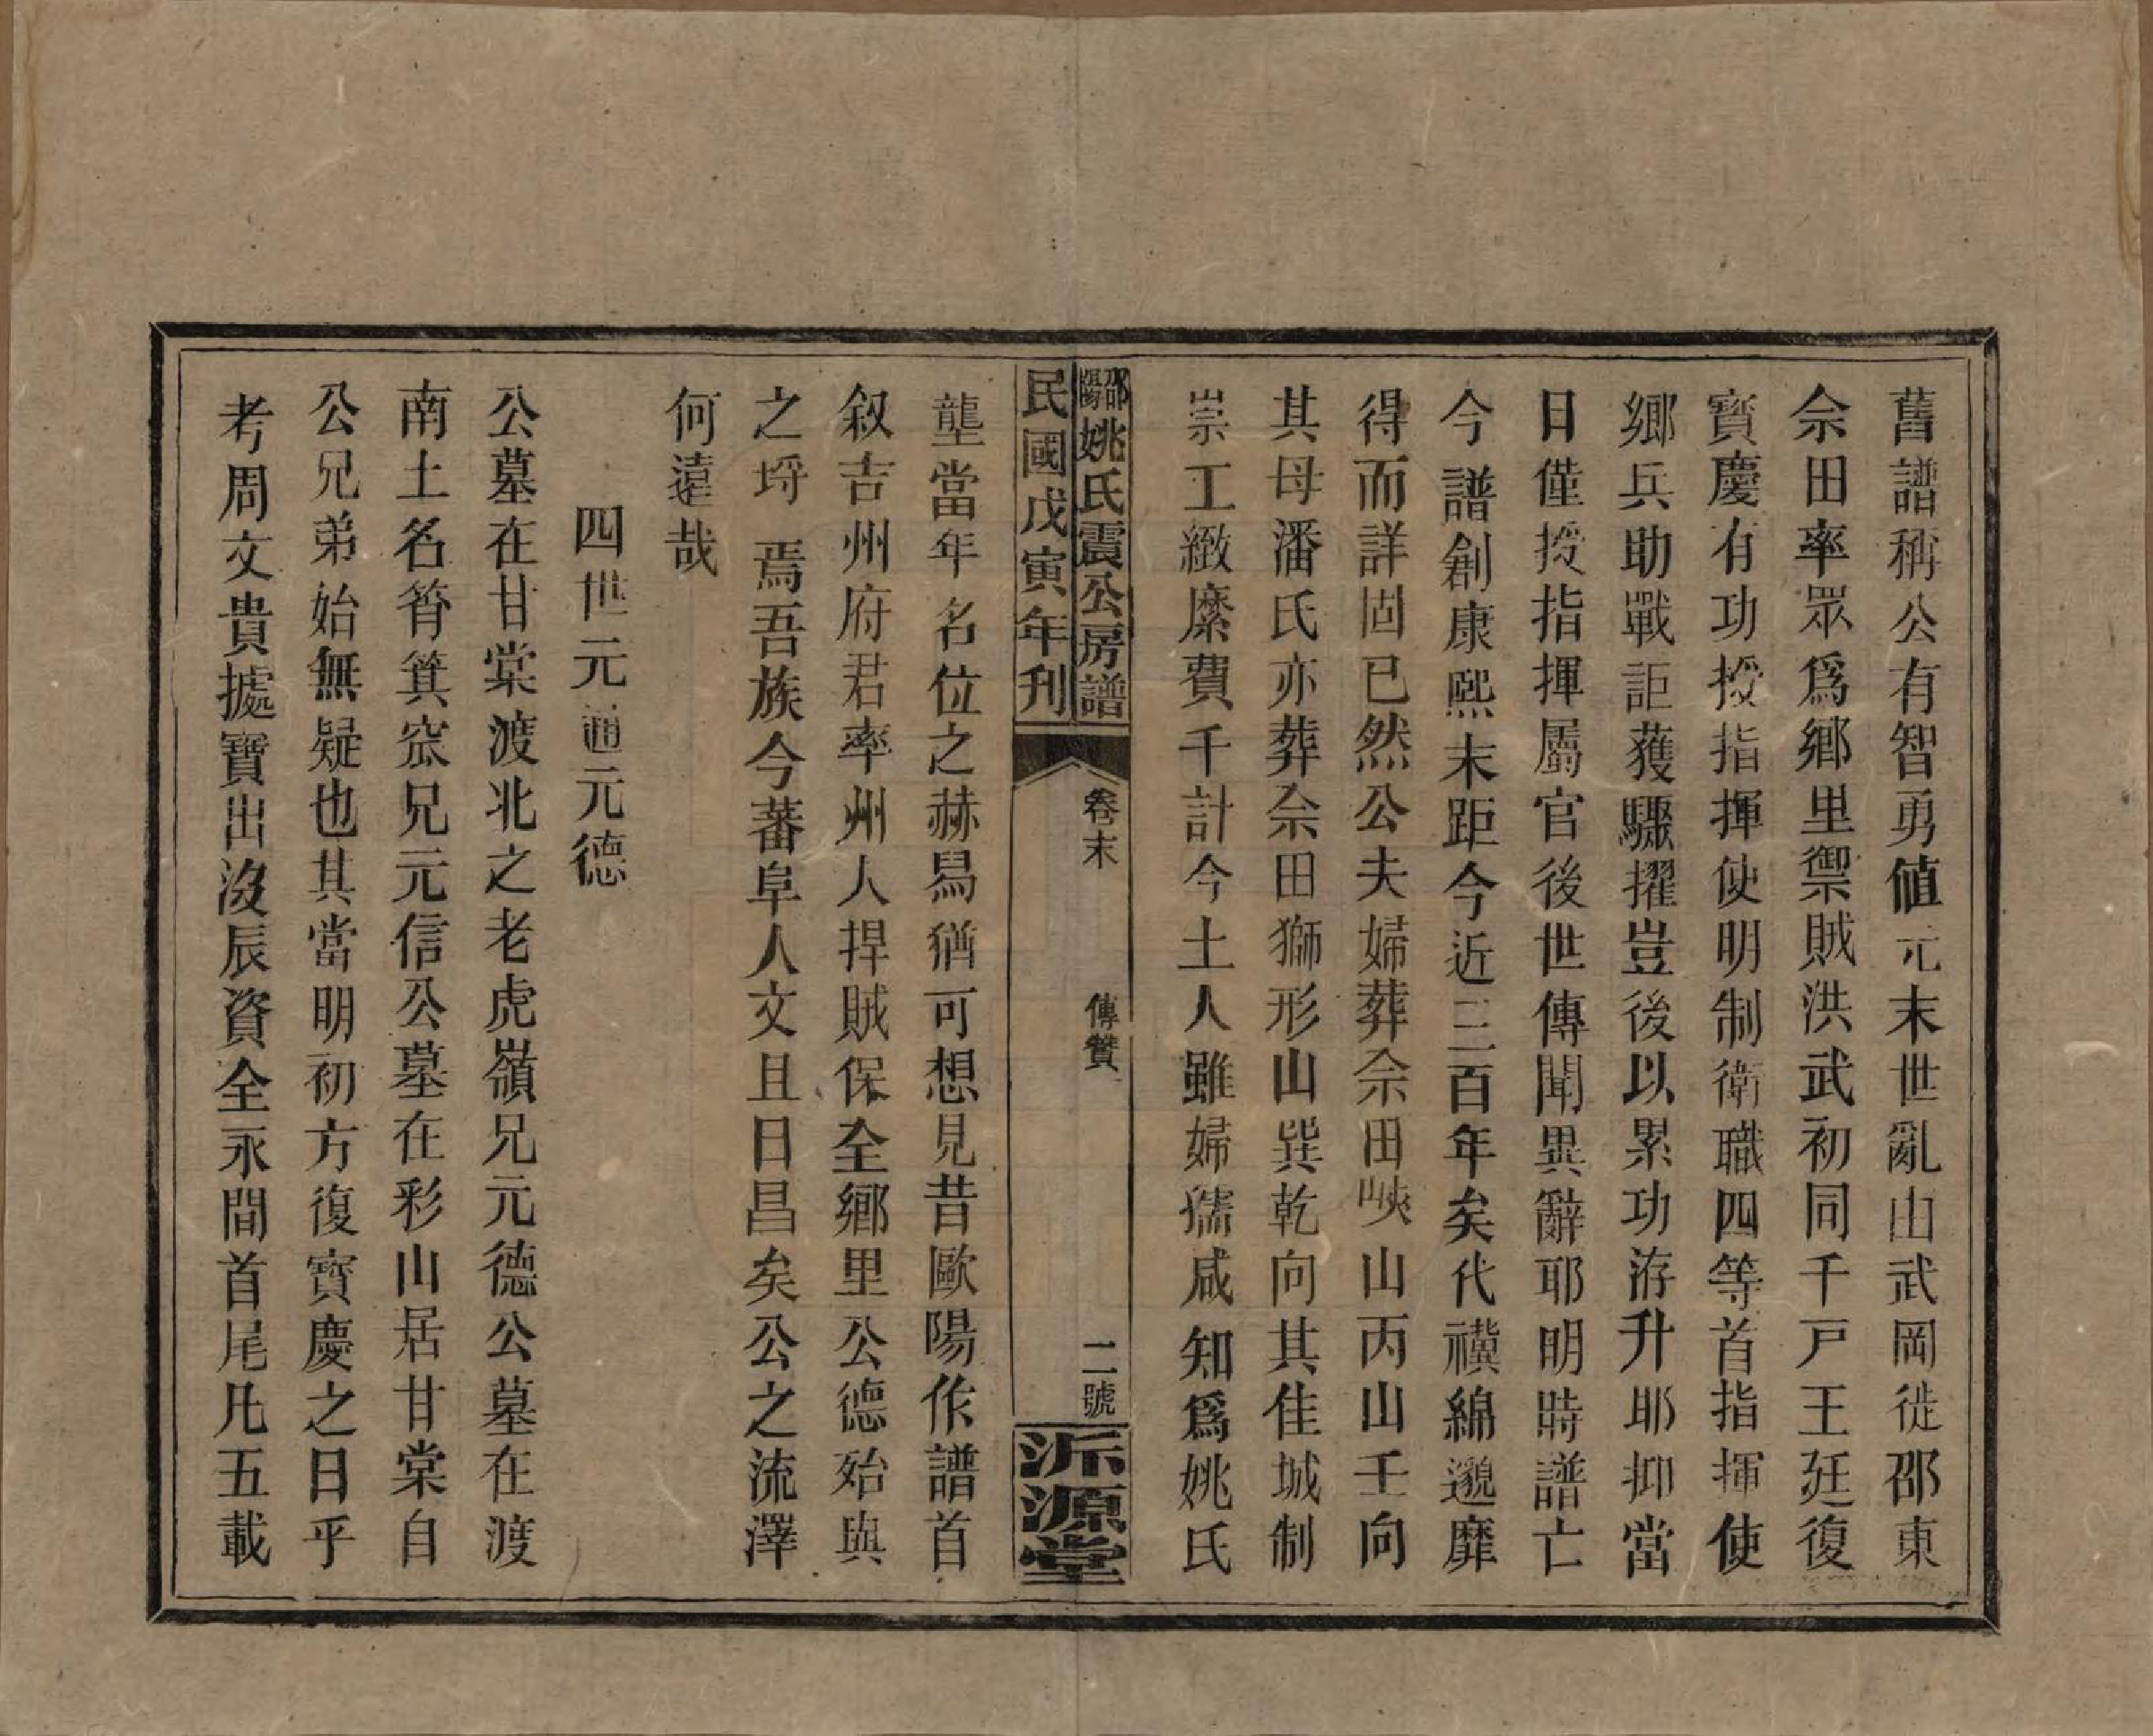 舊譜稱公有智勇値元末世亂由武岡徙邵東
佘田率眾爲鄉里禦賊洪武初同千戸王廷復
寳慶有功授指揮使明制衛職四等首指揮使
鄉兵助戰詎獲驟擢豈後以累功洊升耶抑當
日僅授指揮屬官後世傳聞異辭耶明時譜亡
今譜創康熙末距今近二百年矣代禩綿邈靡
得而詳固已然公夫婦葬佘田峽山丙山壬向
其母潘氏亦葬佘田獅形山巽乾向其佳城制
崇工緻縻費千計今土人雖婦孺咸知爲姚氏
邵陽姚氏震公房譜
民國戊寅年刊
卷末
傳贊
二號
泝源堂
壟當年名位之赫舄猶可想見昔歐陽作譜首
叙吉州府君率州人捍賊保全鄉里公德殆與
之埒焉吾族今蕃阜人文且日昌矣公之流澤
何遠哉
四世元通元德
公墓在甘棠渡北之老虎嶺兄元德公墓在渡
南土名筲箕窊兄元信公墓在彩山居甘棠自
公兄弟始無疑也其當明初方復寳慶之日乎
考周文貴據寶出沒辰資全永間首尾凡五載